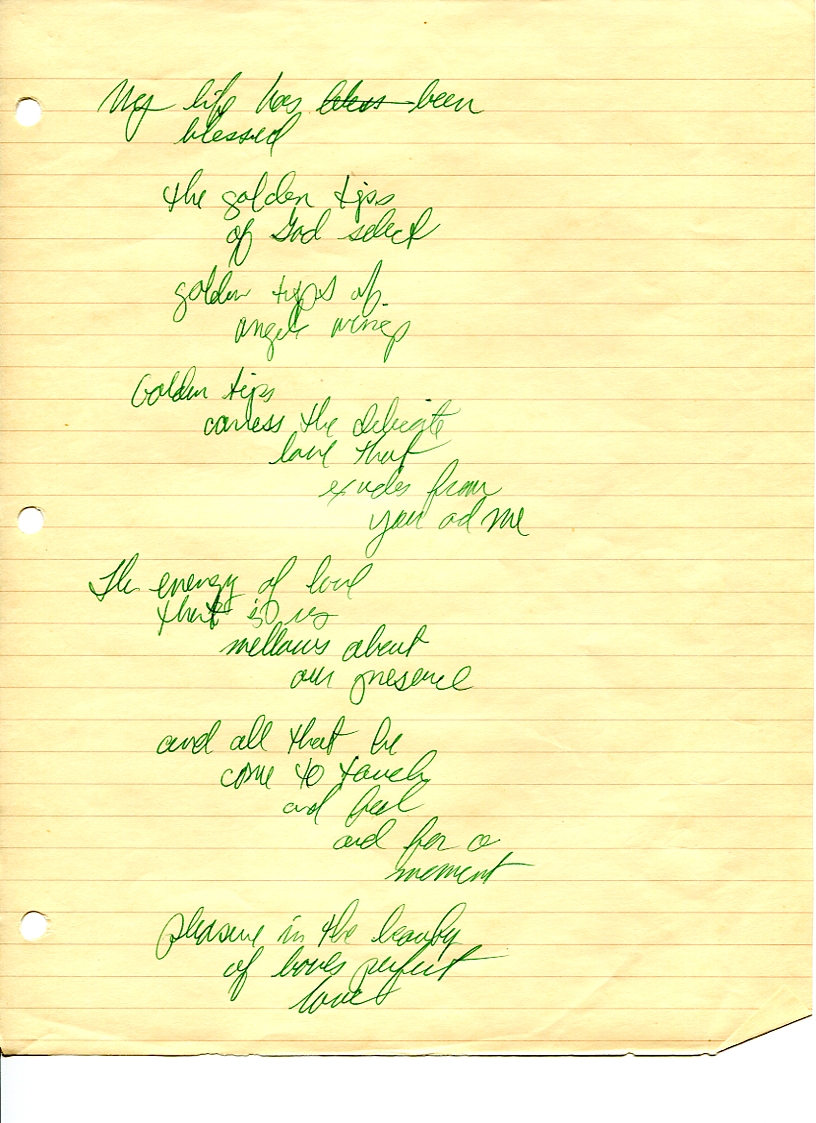 My life has been
blessed
the golden tips
of God select
golden tips of
angels wings
Golden tips
caress the delicate
love that
exudes from
you ad me
The energy of love
that is us
mellows about
our presence
and all that be
come to touch
and feel
and for a
moment
pleasure in the beauty
of perfect
love